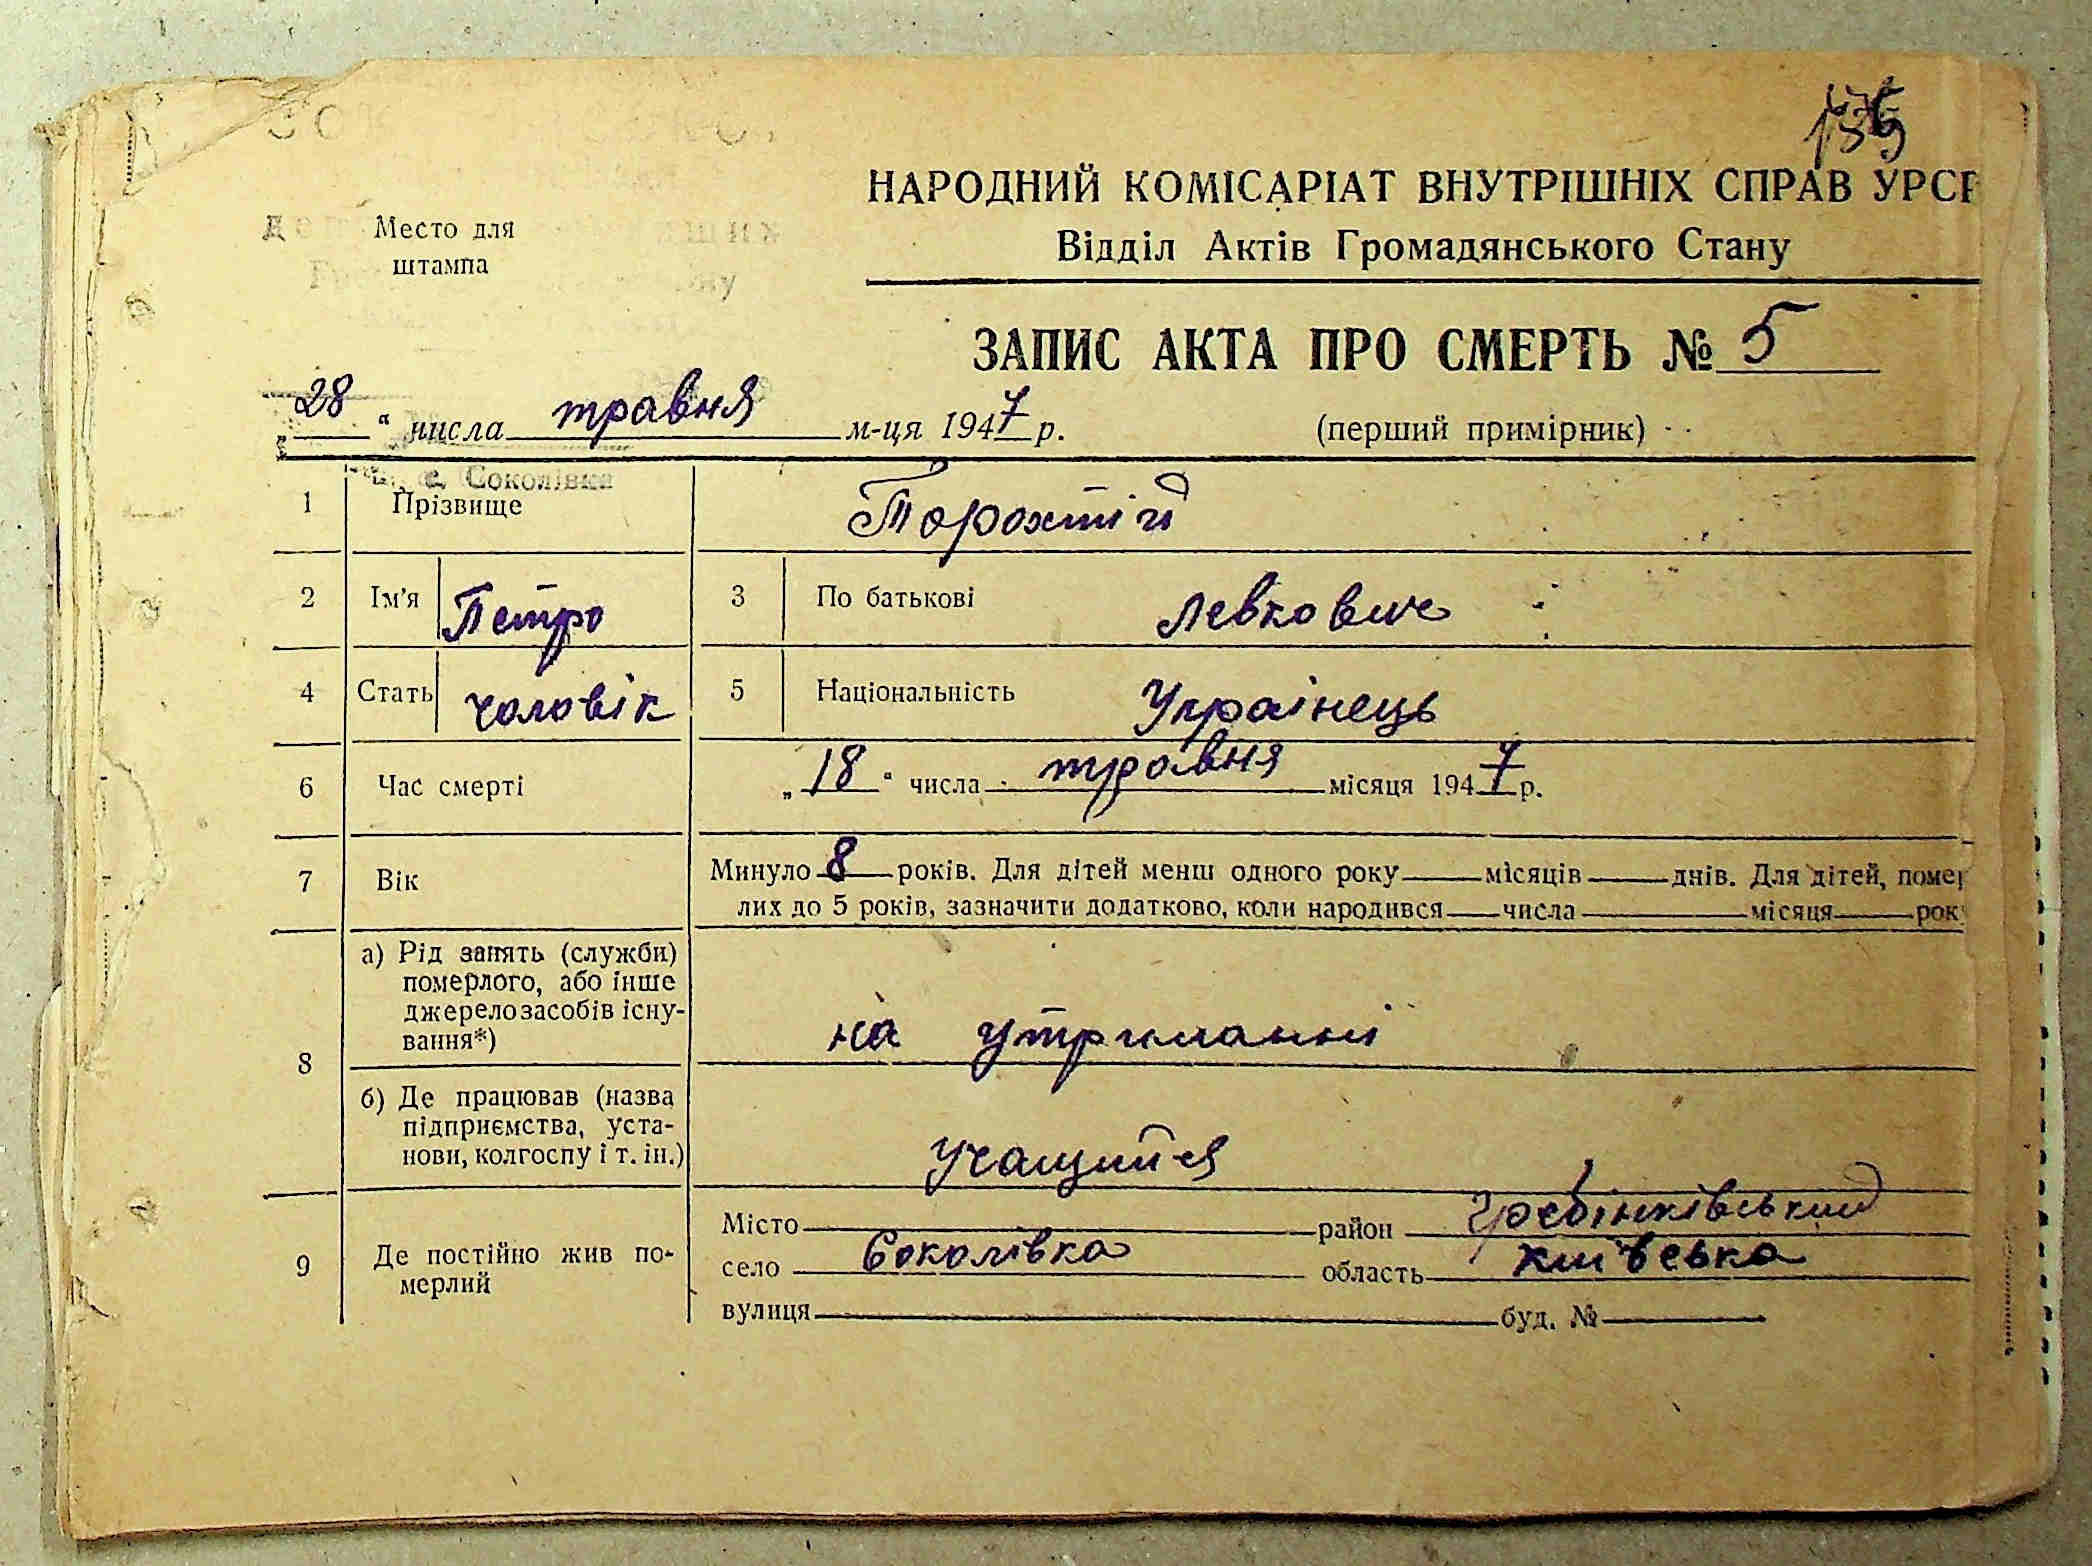 НАРОДНИЙ КОМІСАРІАТ ВНУТРІШНІХ СПРАВ УРСР
Відділ Актів Громадянського Стану
Место для
штампа
ЗАПИС АКТА ПРО СМЕРТЬ № 5
28 " числа травня м-ця 1947 р. (перший примірник)
с. Соколівка
1 Прізвище Торохтій
2 Ім'я Петро 3 По батькові Левкович
4 Стать чоловік 5 Національність Українець
6 Час смерті „ 18 " числа травня місяця 1947 р.
7 Вік Минуло 8 років. Для дітей менш одного року місяців днів. Для дітей, помер
лих до 5 років, зазначити додатково, коли народився числа місяця рок
8 а) Рід занять (служби)
померлого, або інше
джерело засобів існу-
вання*) на утриманні
б) Де працював (назва
підприємства, уста-
нови, колгоспу і т. ін.) учащийся
9 Де постійно жив по-
мерлий
Місто район Гребінківський
село Соколівка область Київська
вулиця буд. №